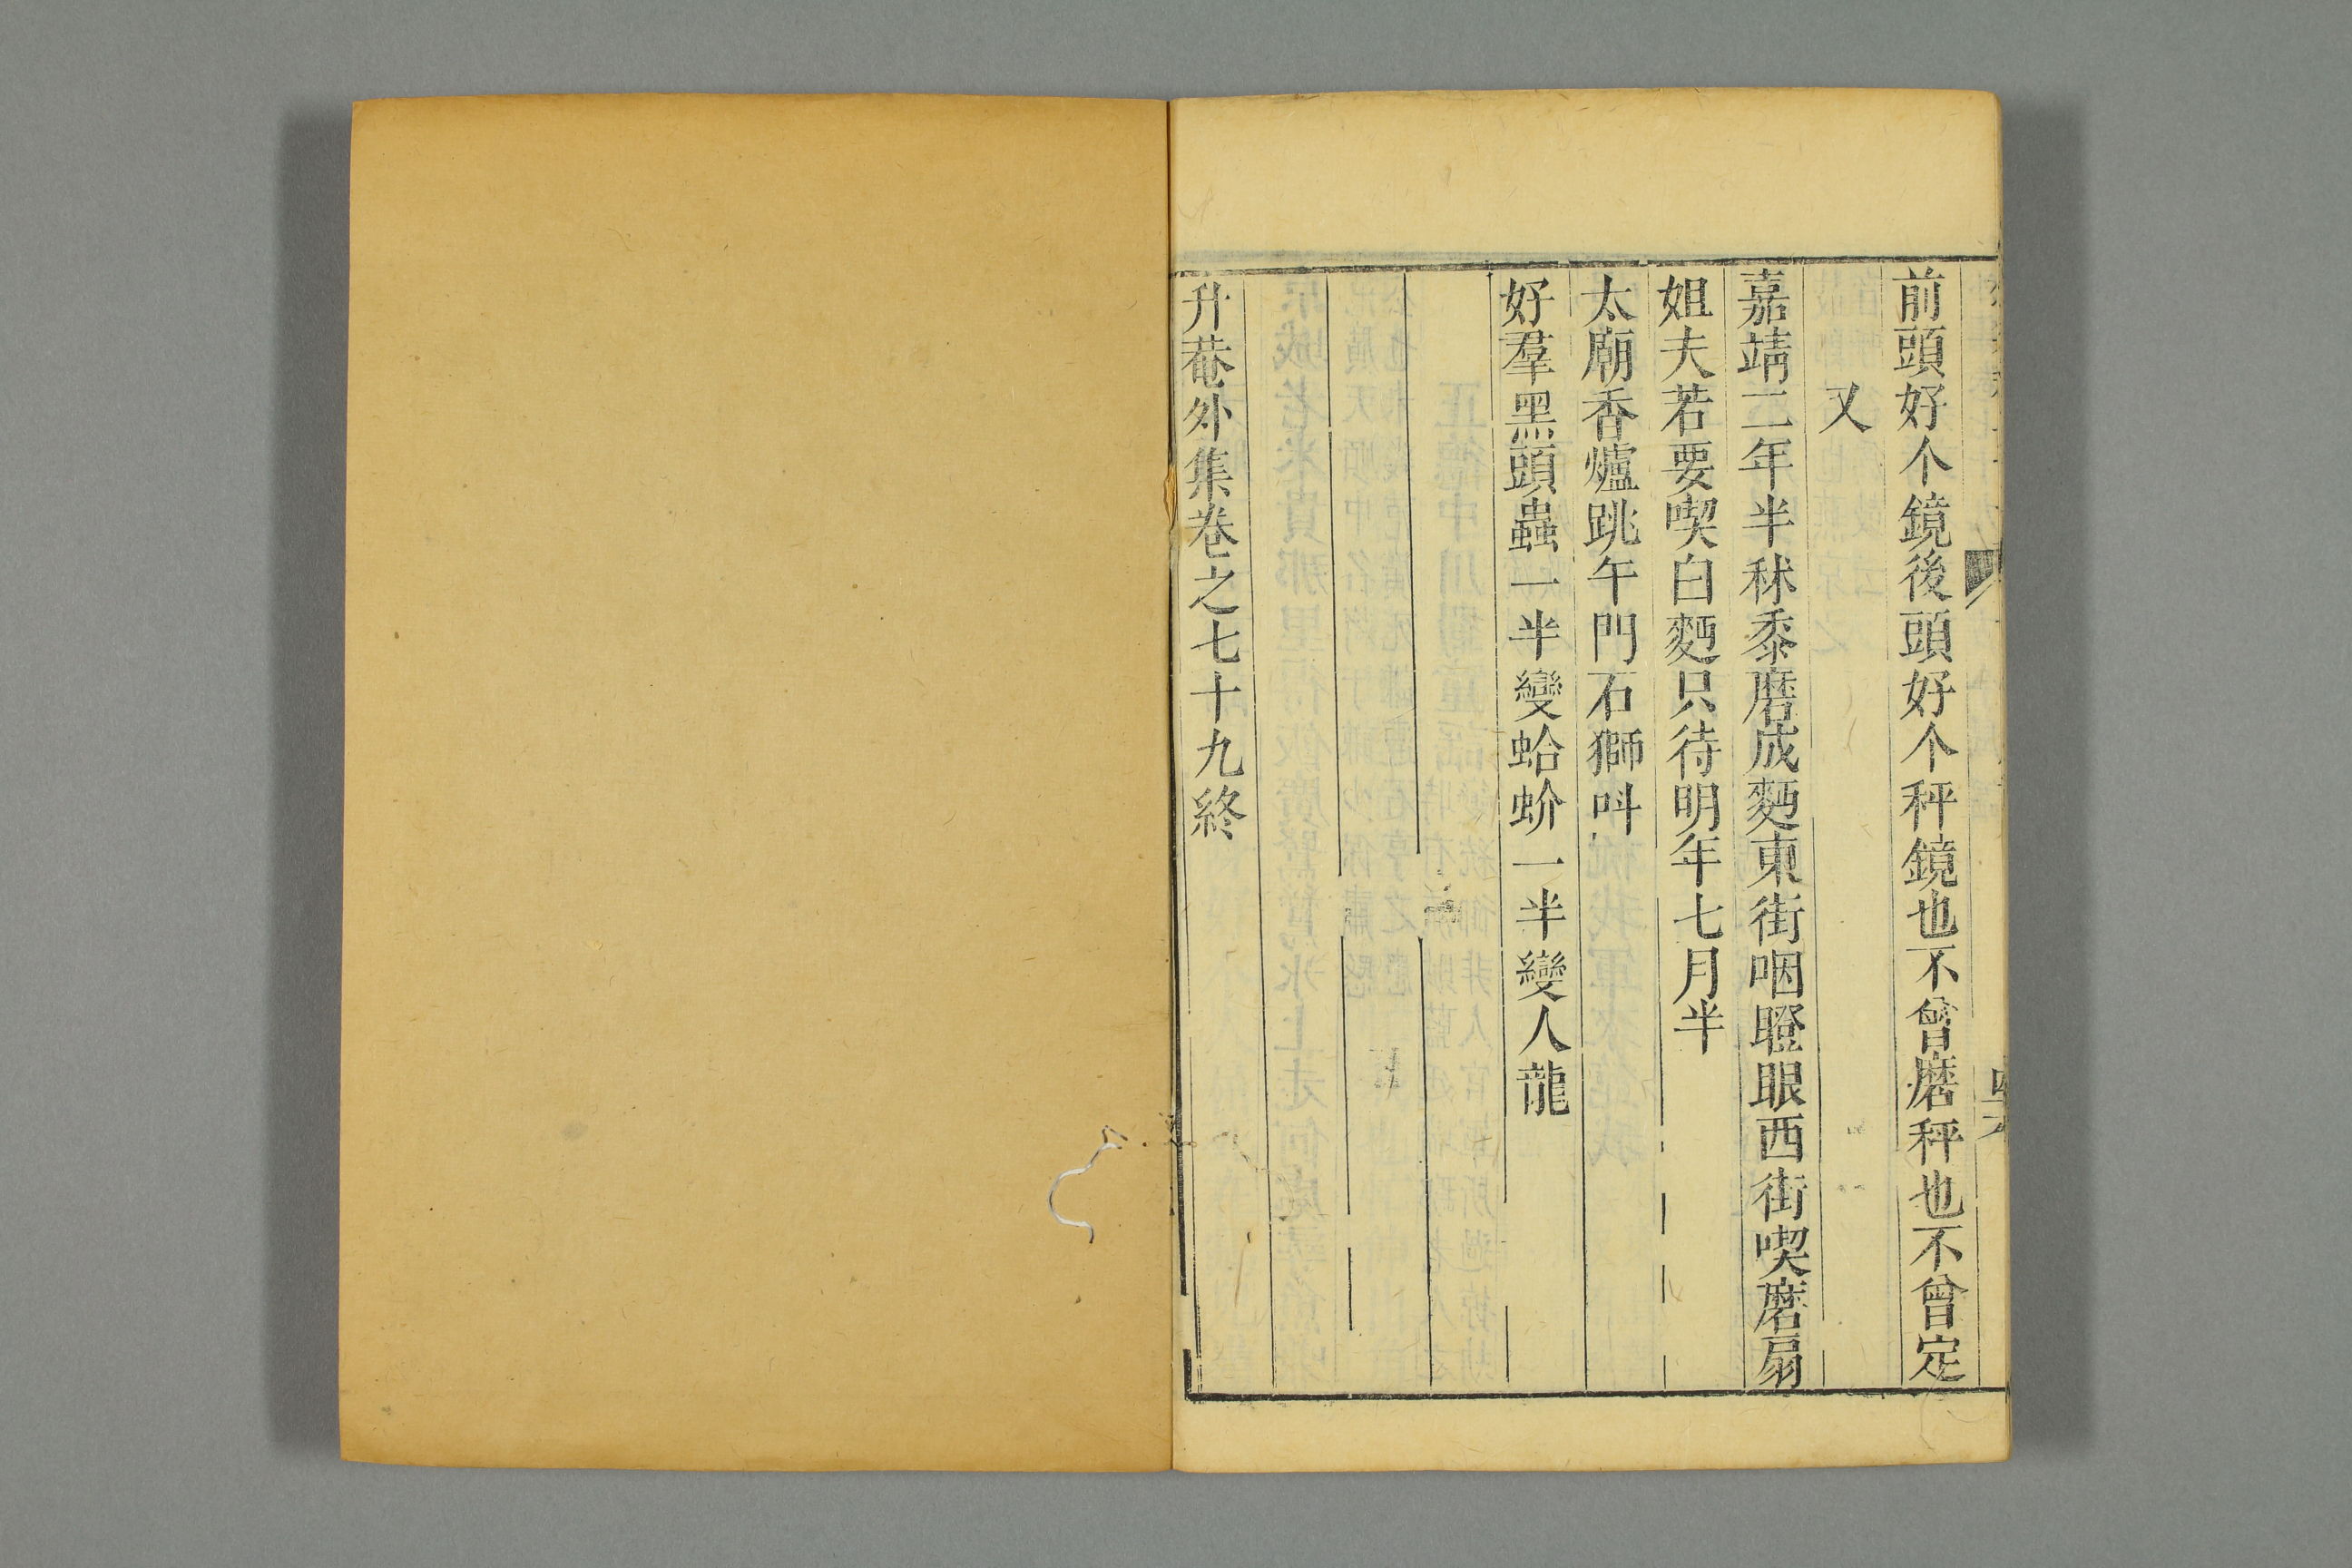 前頭好个鏡後頭好个秤鏡也不曾磨秤也不曾定
又
嘉靖二年半秫黍磨成麪東街咽瞪眼西街喫磨扇
姐夫若要喫白麪只待明年七月半
太廟香爐跳午門石獅呌
好羣黑頭蟲一半變蛤蚧一半變人龍
升菴外集卷之七十九終